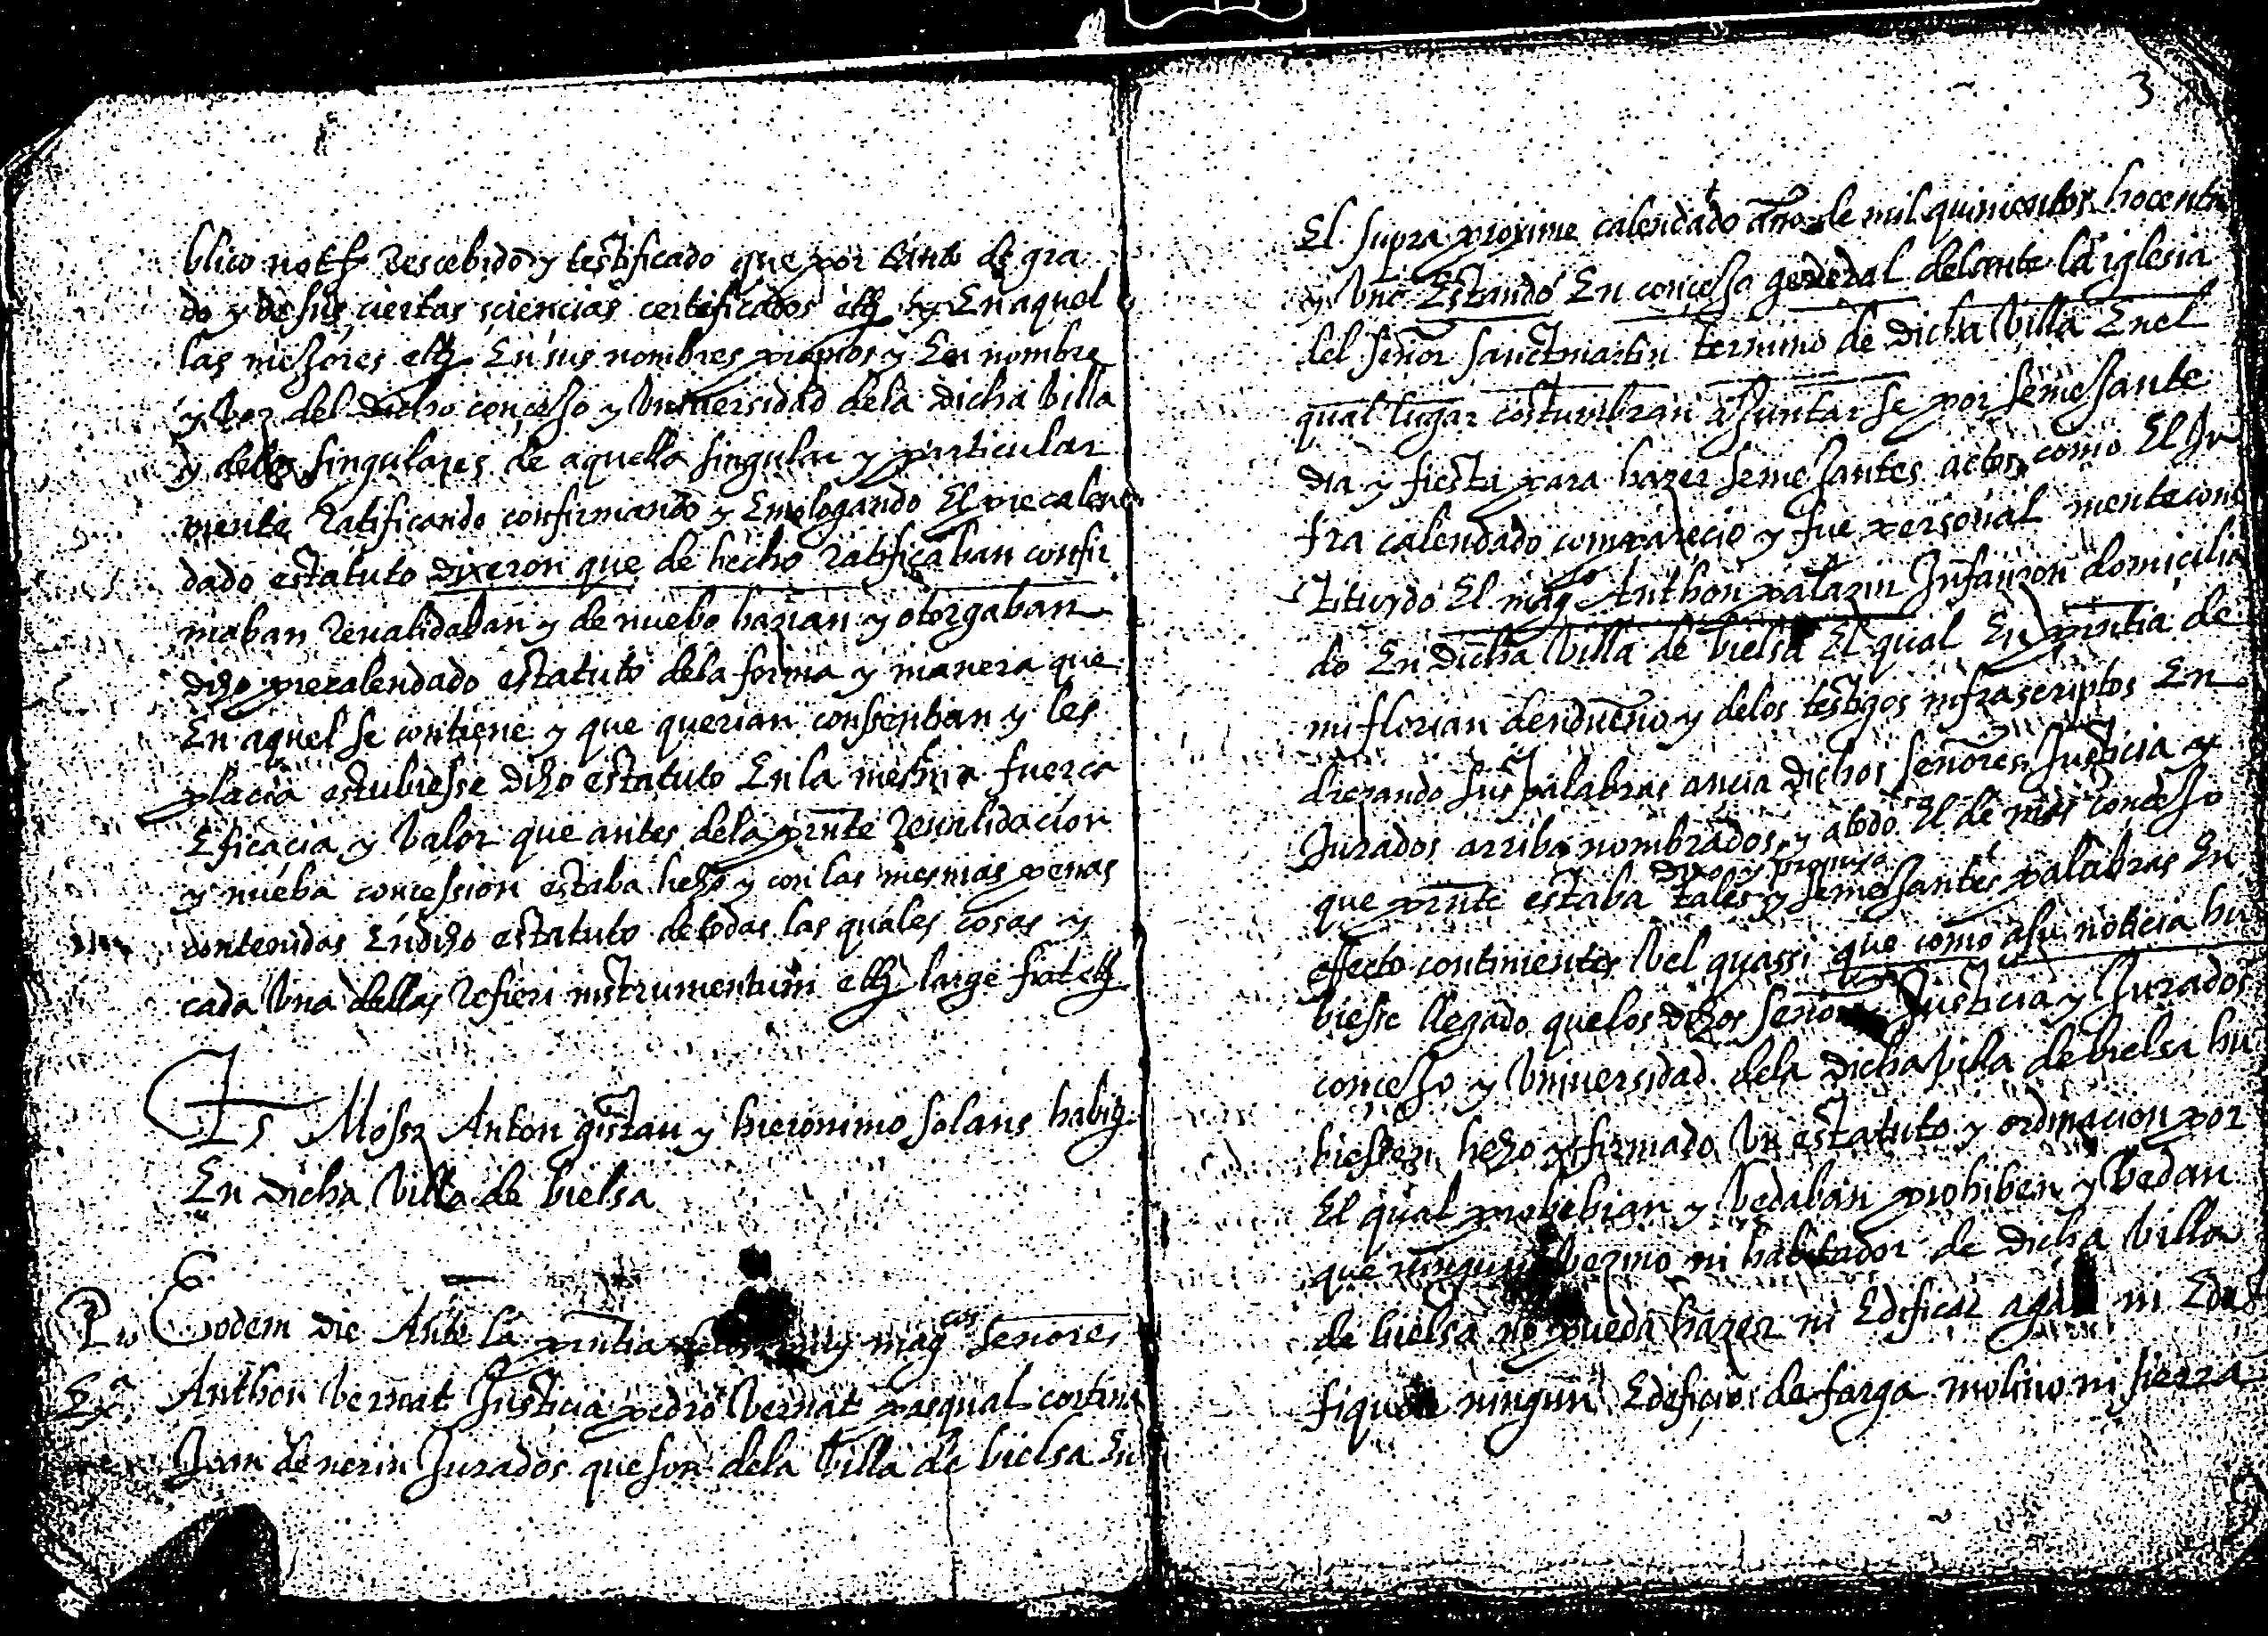 blico notº rescebido y testificado que por tanto de gra
do y de sus ciertas sciencias certificados etc y En aquel
las mejores etc En sus nombres propios y En nombre
y voz del dicho concejo y Universidad dela dicha villa
y delos singulares de aquella singular y particular
mente Ratificando confirmando y Emologando El precalen
dado estatuto dixeron que de hecho ratificaban confir
maban revalidaban y de nuebo hazian y otorgaban
dicho precalendado estatuto dela forma y manera que
En aquel se contiene y que querian consentian y les
placia estubiesse dicho estatuto En la mesma fuerca
Eficacia y valor que antes dela prnte revalidacion
y nueba concession estaba hecho y con las mesmas penas
contenidas En dicho estatuto de todas las quales cosas y
cada una dellas refieri instrumentum etc large fiat etc
Ts Mossz Anton gistau y hieronimo solans habitz
En dicha villa de bielsa
Eodem die Ante la prntia delos muy magcos señores
Anthon bernat Justicia pedro bernat pasqual cortina
Juan de nerin Jurados que son dela villa de bielsa En
3
El supra proxime calendado año de mil quinientos hocenta
y uno Estando En concejo general delante la iglesia
del señor sanct martin termino de dicha villa En el
qual lugar costumbran ajuntarse por semejante
dia y fiesta para hazer semejantes actos como El In
fra calendado comparecio y fue personal mente cons
tituydo El magco Anthon palazin Infanzon domicilia
do En dicha villa de bielsa El qual En prntia de
mi florian dendueño y delos testigos infrascriptos En
drezando sus palabras ancia dichos señores Justicia y
Jurados arriba nombrados y a todo El de mas concejo
que prnte estaba dixo y propuso tales y semejantes palabras En
effecto continientes vel quassi que como a su noticia hu
biesse llegado que los dichos señores Justicia y Jurados
concejo y Universidad dela dicha villa de bielsa hu
biessen hecho y firmado un estatuto y ordinacion por
El qual prohibian y vedaban prohiben y vedan
que ningun vezino ni habitador de dicha villa
de bielsa no pueda hazer ni Edificar aga ni Edi
fique ningun Edificio de farga molino ni sierra